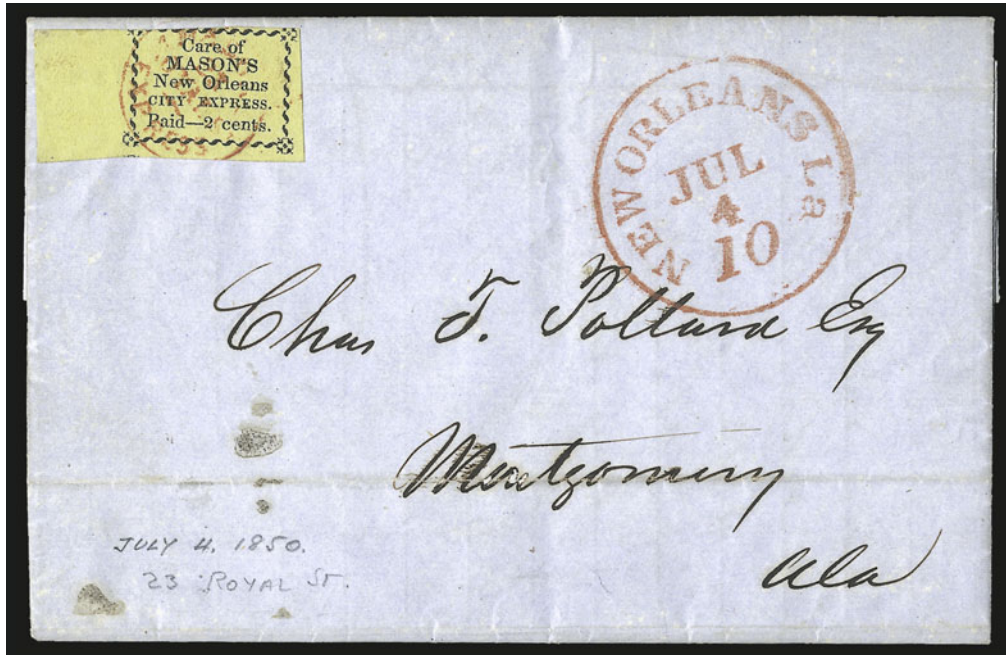 Care of
MASON'S
New Orleans
CITY EXPRESS.
Paid—2 cents.
NEW ORLEANS La
JUL
4
10
Chas T. Pollard Esq
Montgomery
Ala
JULY 4. 1850.
23 ROYAL ST.